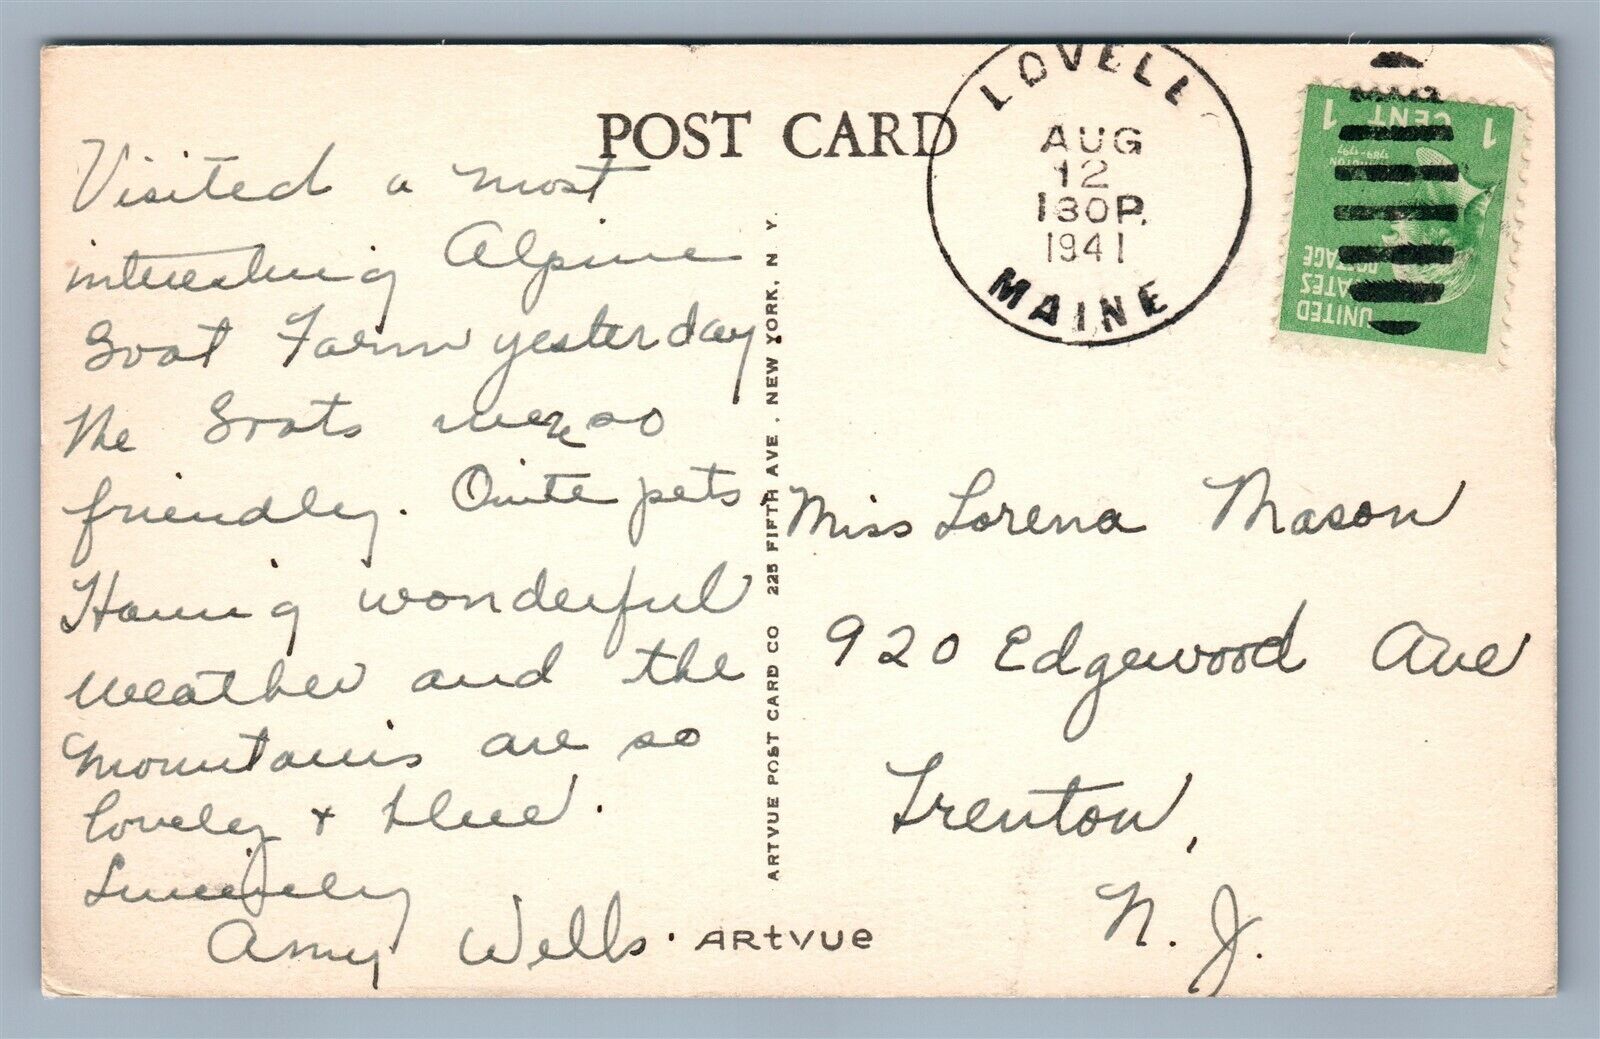 POST CARD
LOVELL
AUG
12
130P.
1941
MAINE
1 CENT 1
WASHINGTON
1789-1797
UNITED
STATES
POSTAGE
Visited a most
interesting Alpine
Goat Farm yesterday
The Goats were so
friendly. Quite pets
Having wonderful
weather and the
Mountains are so
lovely + blue.
Sincerely
Amy Wells.
ARTVUE POST CARD CO 225 FIFTH AVE. NEW YORK, N Y.
ARTVUE
Miss Lorena Mason
920 Edgewood Ave
Trenton,
N. J.